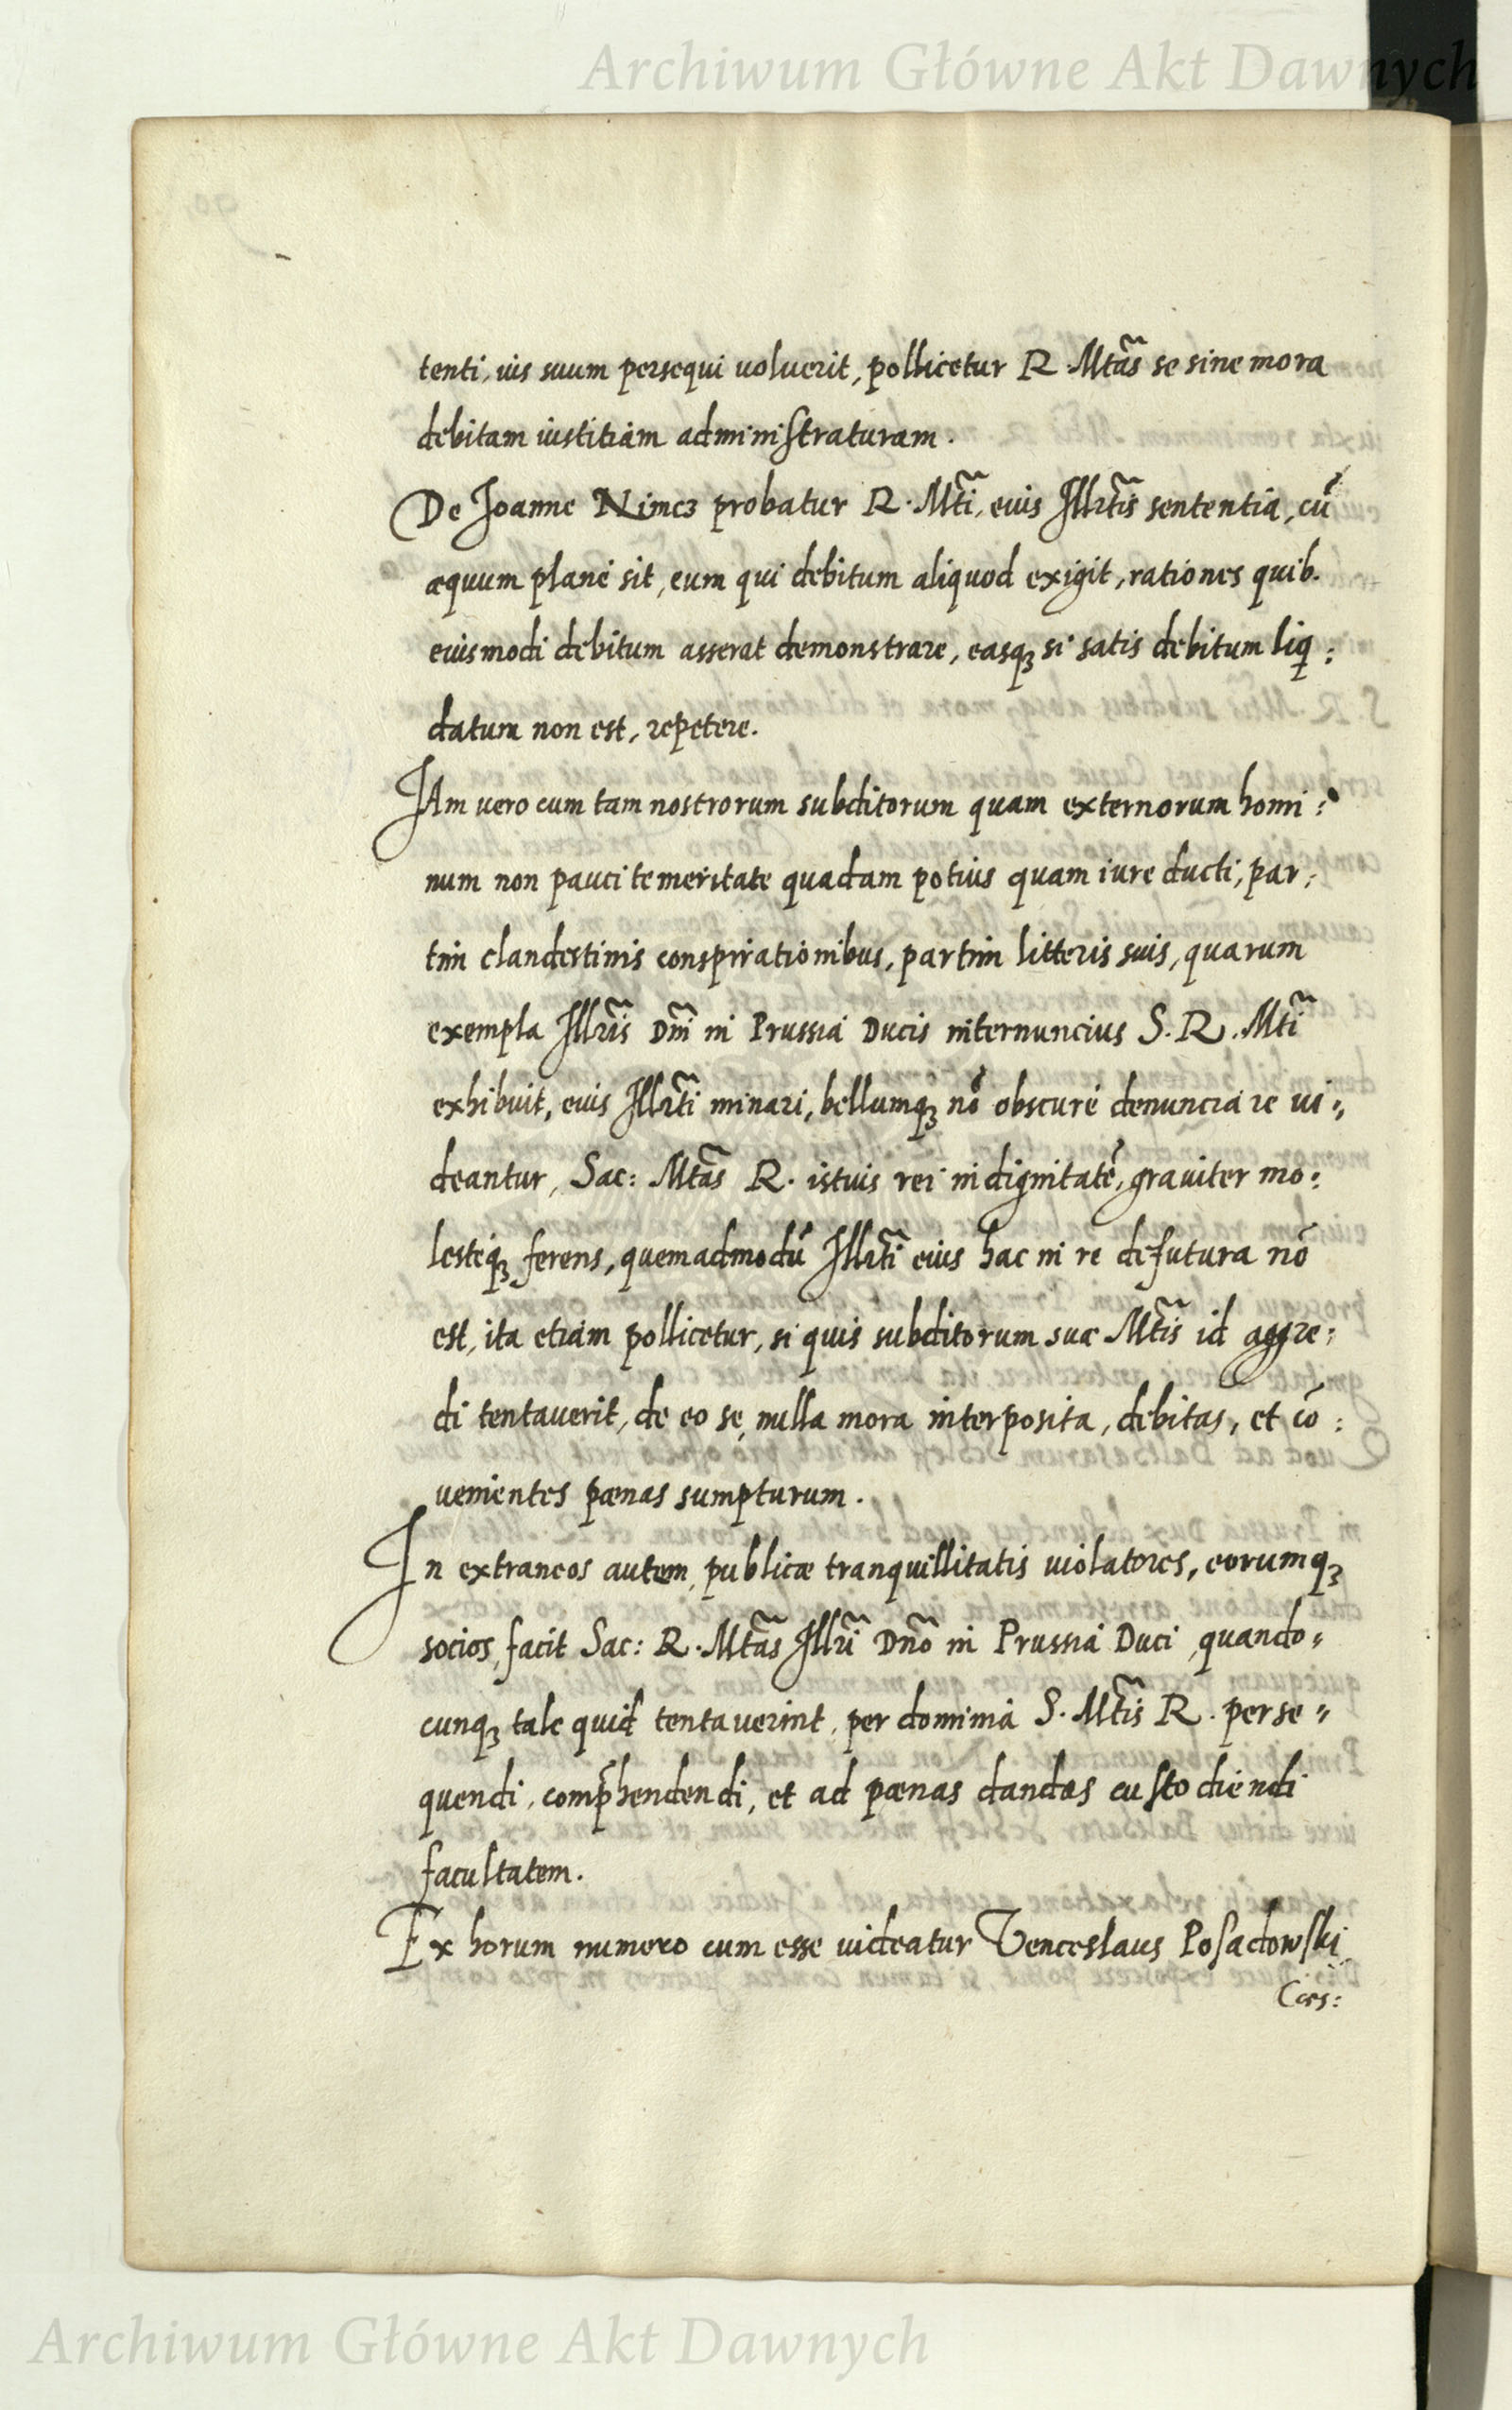 Archiwum Główne Akt Dawnych
tenti, ius suum persequi uoluerit, pollicetur R. Mtãs se sine mora
debitam iustitiam administraturam.
De Joanne Nimcz probatur R. Mti͂, eius Illrtis͂ sententia, cũ
æquum planè sit, eum qui debitum aliquod exigit, rationes quib.
eiusmodi debitum asserat demonstrare, easqꝫ si satis debitum liq:
datum non est, repetere.
JAm uero cum tam nostrorum subditorum quam externorum homi:
num non pauci temeritate quadam potius quam iure ducti, par:
tim clandestinis conspirationibus, partim litteris suis, quarum
exempla Illris͂ Dni͂ in Prussia Ducis internuncius S. R. Mti͂
exhibuit, eius Illrti͂ minari, bellumqꝫ nõ obscurè denunciare ui:
deantur, Sac: Mtãs R. istius rei indignitatẽ, grauiter mo:
lestéqꝫ ferens, quemadmodũ Illrti͂ eius hac in re defutura nõ
est, ita etiam pollicetur, si quis subditorum suæ Mtis͂ id aggre:
di tentauerit, de eo se, nulla mora interposita, debitas, et cõ:
uenientes pænas sumpturum.
In extraneos autem, publicæ tranquillitatis uiolatores, eorumqꝫ
socios, facit Sac: R. Mtãs Illri͂ Dnõ in Prussia Duci, quando:
cunqꝫ tale quid tentauerint, per dominia S. Mtis͂ R. perse:
quendi, comp̃hendendi, et ad pænas dandas custodiendi
facultatem.
Ex horum numero cum esse uideatur Venceslaus Posadowski
Cæs:
Archiwum Główne Akt Dawnych